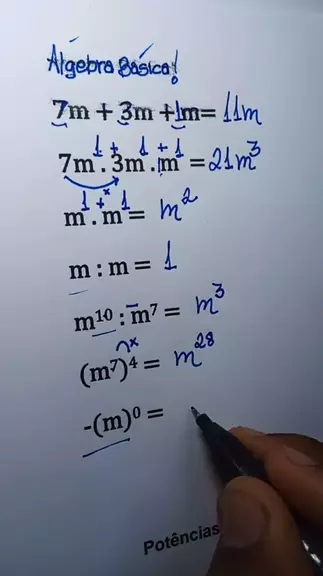 Álgebra Básica!
7m + 3m + 1m = 11m
1 + 1 + 1
7m . 3m . m = 21m³
1 + 1
x
m . m = m²
m : m = 1
m¹⁰ : m⁷ = m³
x
(m⁷)⁴ = m²⁸
-(m)⁰ =
Potências